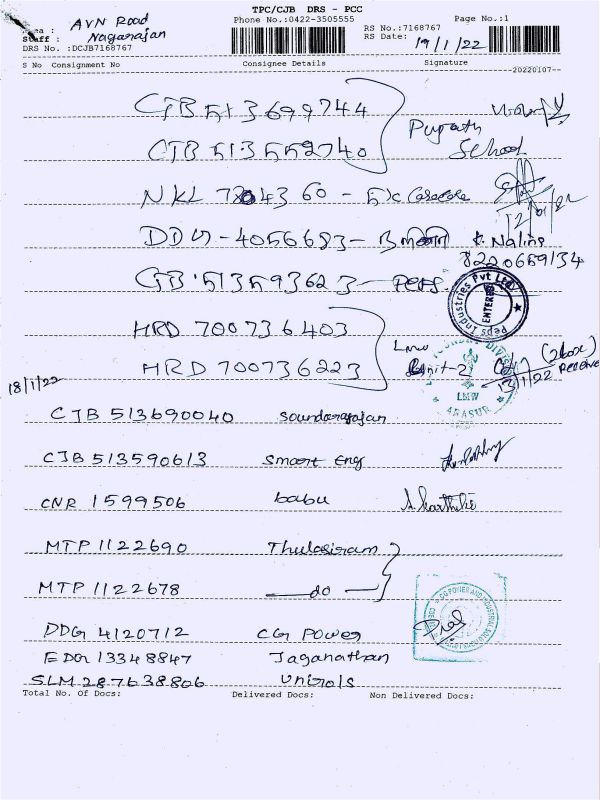 TPC/CJB DRS - PCC
Area : AVN Road Phone No.:0422-3505555 Page No.:1
Staff : Nagarajan RS No.:7168767
DRS No. :DCJB7168767 RS Date: 19/1/22
S No Consignment No Consignee Details Signature
20220107--
CJB 513699744
CJB 513552740 School
NKL
DDG - 4056683 - K. Nalina
8220659134
CJB 513593623 - PEPS.
Peps Industries Pvt Ltd
ENTERED
HRD 700736403
HRD 700736223 LMW Unit-2 (2 box) Receive
13/1/22
LMW
ARASUR
18/1/22
CJB 513690040 Soundarajan
CJB 513590613 Smart Eng
CNR 1599506 babu A. Karthika
MTP 1122690 Thulasiram
MTP 1122678 — do —
DDG 4120712 CG Power
EDG 13348847 Jaganathan
SLM 287638806
Total No. Of Docs: Delivered Docs: Non Delivered Docs: